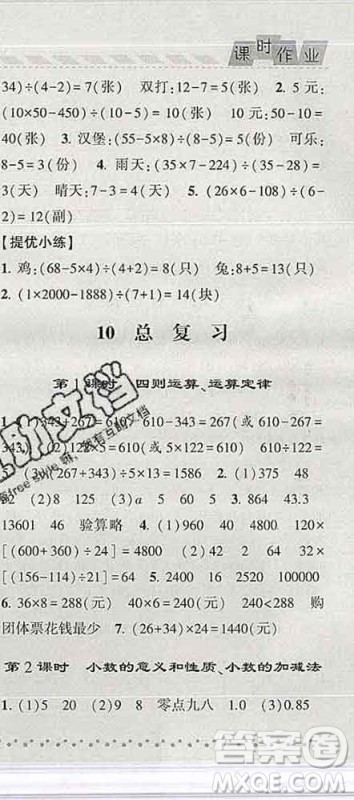 课时作业
34)÷(4-2)=7(张)　双打:12-7=5(张)　2. 5元:
(10×50-450)÷(10-5)=10(张)　10元:50-10=
40(张)　3. 汉堡:(5×8-31)÷(8-5)=3(份)　可乐:
8-5=3(份)　4. 雨天:(35×7-224)÷(35-21)=
3(天)　晴天:7-3=4(天)　5. (26×6-108)÷(6-
2)=12(副)
【提优小练】
1. 鸡:(68-5×4)÷(4+2)=8(只)　兔:8+5=13(只)
2. (1×2000-1888)÷(7+1)=14(块)
10 总复习
第1课时　四则运算、运算定律
1. (1)343+267=610　610-343=267(或 610-267=
(2)122×5=610　610÷5=122(或 610÷122=
(3)(267+343)÷5=122　2. (1)375　48
32　(2)8　125　(3)a　5　60　3. 864　43.8
13601　46　验算略　4. (1)960　40　100×
[(600+360)÷24]=4000　(2)42　14　32×
[(156-114)÷21]=64　5. 2400　12　100000
6. 36×8=288(元)　40×6=240(元)　240<288　购
团体票花钱最少　7. (26+34)×24=1440(元)
第2课时　小数的意义和性质、小数的加减法
1. (1)5　20　(2)9　8　零点九八　1.0　(3)0.85
作业帮助文档
有答互助文档
答案圈
MXQE.COM